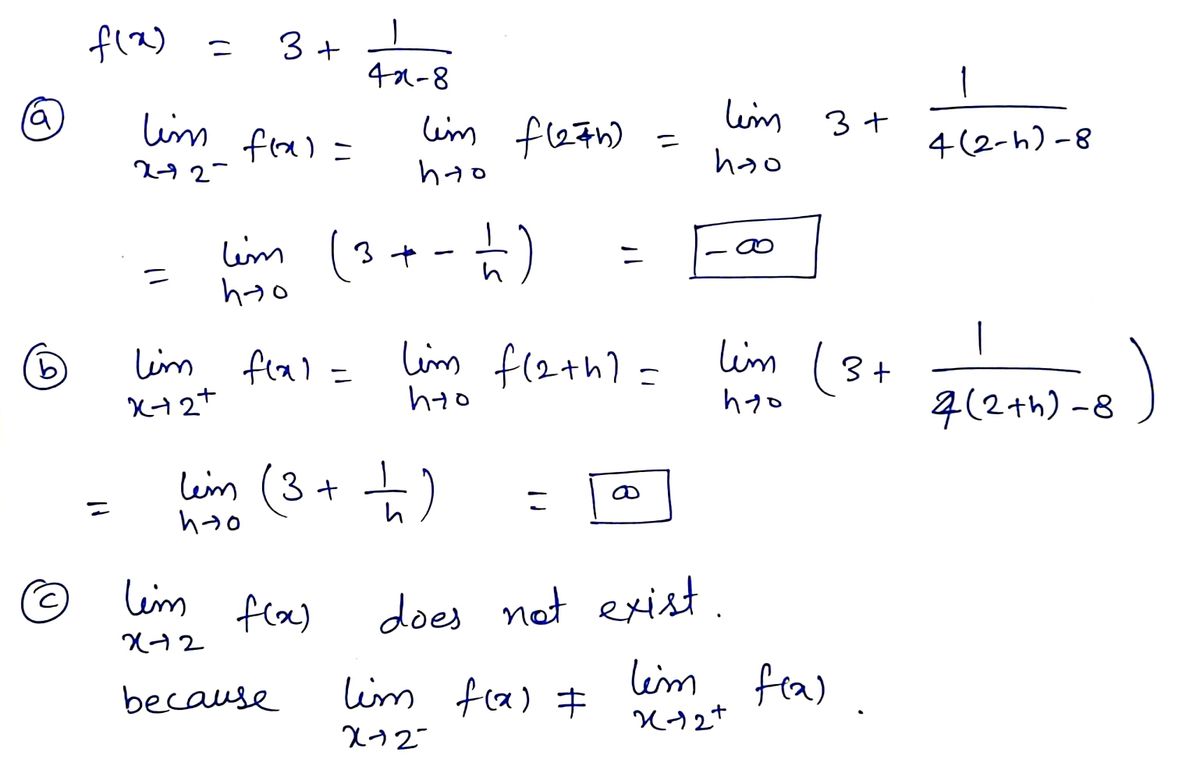 f(x) = 3 + 1/(4x-8)
ⓐ lim x→2⁻ f(x) = lim h→0 f(2-h) = lim h→0 3 + 1/(4(2-h)-8)
= lim h→0 (3 + - 1/h) = -∞
ⓑ lim x→2⁺ f(x) = lim h→0 f(2+h) = lim h→0 (3 + 1/(4(2+h)-8))
= lim h→0 (3 + 1/h) = ∞
ⓒ lim x→2 f(x) does not exist.
because lim x→2⁻ f(x) ≠ lim x→2⁺ f(x).